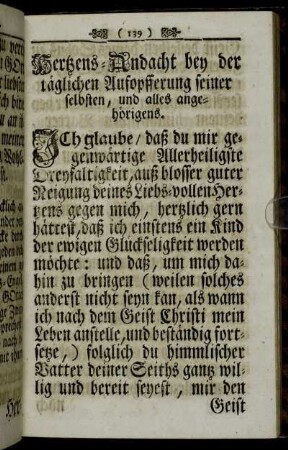 ( 139 )
Hertzens-Andacht bey der
täglichen Aufopfferung seiner
selbsten, und alles ange-
hörigens.
ICh glaube / daß du mir ge-
genwärtige Allerheiligste
Dreyfaltigkeit, auß blosser guter
Neigung deines Liebs-vollen Her-
tzens gegen mich, hertzlich gern
hättest, daß ich einstens ein Kind
der ewigen Glückseligkeit werden
möchte: und daß, um mich da-
hin zu bringen (weilen solches
anderst nicht seyn kan, als wann
ich nach dem Geist Christi mein
Leben anstelle, und beständig fort-
setze,) folglich du himmlischer
Vatter deiner Seiths gantz wil-
lig und bereit seyest, mir den
Geist